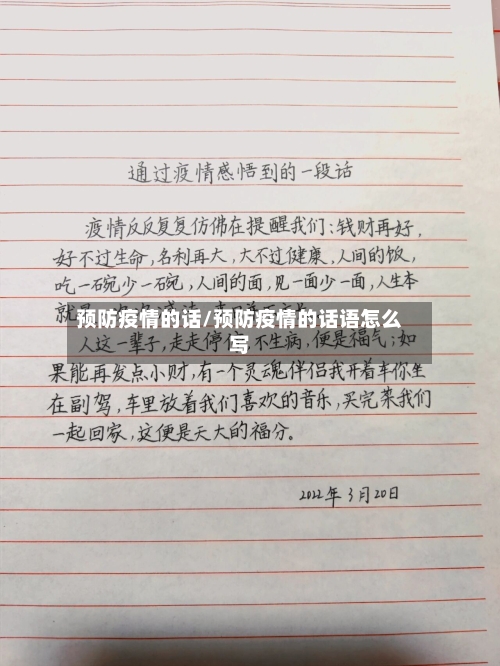 通过疫情感悟到的一段话
疫情反反复复仿佛在提醒我们:钱财再好,
好不过生命,名利再大,大不过健康,人间的饭,
吃一碗少一碗,人间的面,见一面少一面,人生本
就是
预防疫情的话/预防疫情的话语怎么
写
人这一辈子,走走停停,不生病,便是福气;如
果能再发点小财,有一个灵魂伴侣我开着车你坐
在副驾,车里放着我们喜欢的音乐,买完菜我们
一起回家,这便是天大的福分。
2022年3月20日